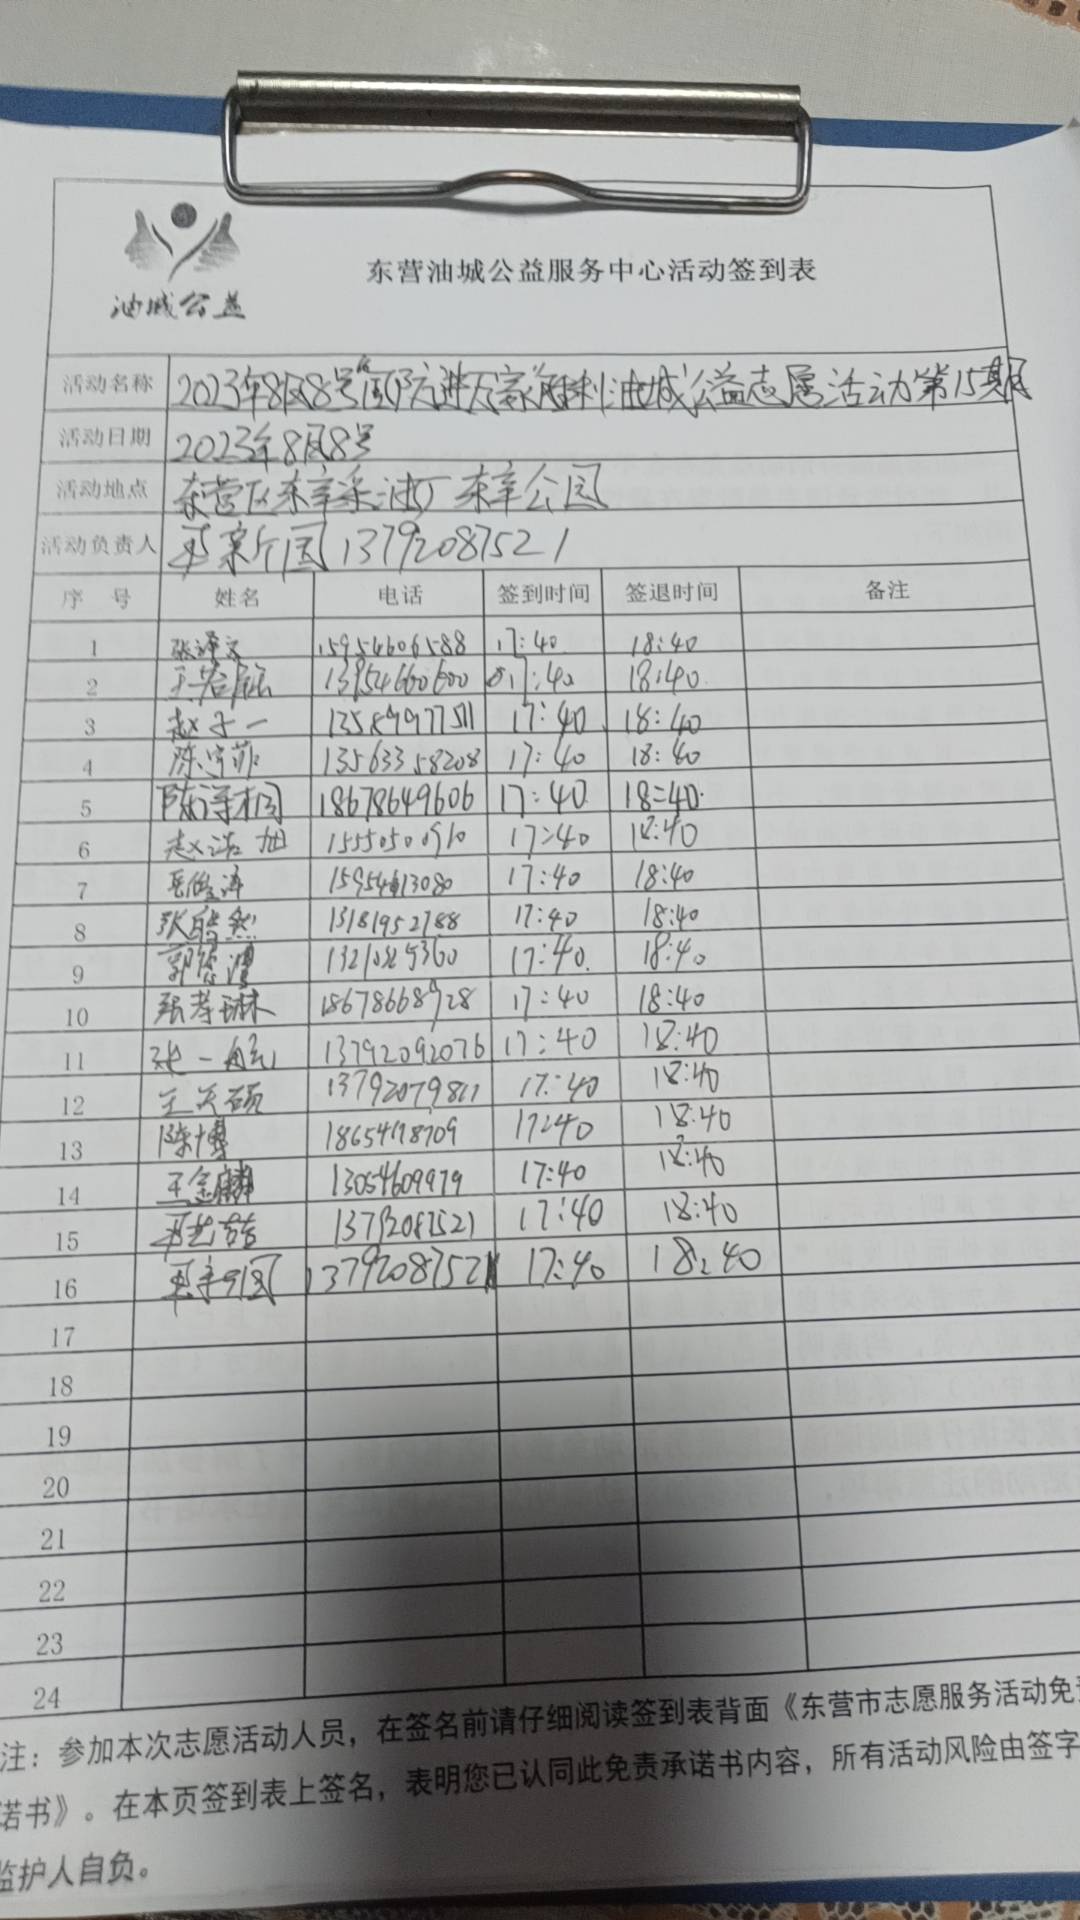 东营油城公益服务中心活动签到表
油城公益
活动名称 2023年8月8号 进万家 油城公益志愿活动第15期
活动日期 2023年8月8号
活动地点 东营区东辛采油厂东辛公园
活动负责人 13792087521
序号 姓名 电话 签到时间 签退时间 备注
1 张泽文 15954606588 17:40 18:40
2 13954660600 17:40 18:40
3 赵子一 13589977511 17:40 18:40
4 陈宇菲 13563358208 17:40 18:40
5 陈泽桐 18678649606 17:40 18:40
6 赵浩旭 15550500910 17:40 18:40
7 15954613080 17:40 18:40
8 张皓然 13181952788 17:40 18:40
9 17:40 18:40
10 张梦琳 18678668928 17:40 18:40
11 张一航 13792092076 17:40 18:40
12 王天硕 13792079811 17:40 18:40
13 陈博 17:40 18:40
14 王金麟 13054609979 17:40 18:40
15 13792087521 17:40 18:40
16 13792087521 17:40 18:40
17
18
19
20
21
22
23
24
注：参加本次志愿活动人员，在签名前请仔细阅读签到表背面《东营市志愿服务活动免责
诺书》。在本页签到表上签名，表明您已认同此免责承诺书内容，所有活动风险由签字
监护人自负。